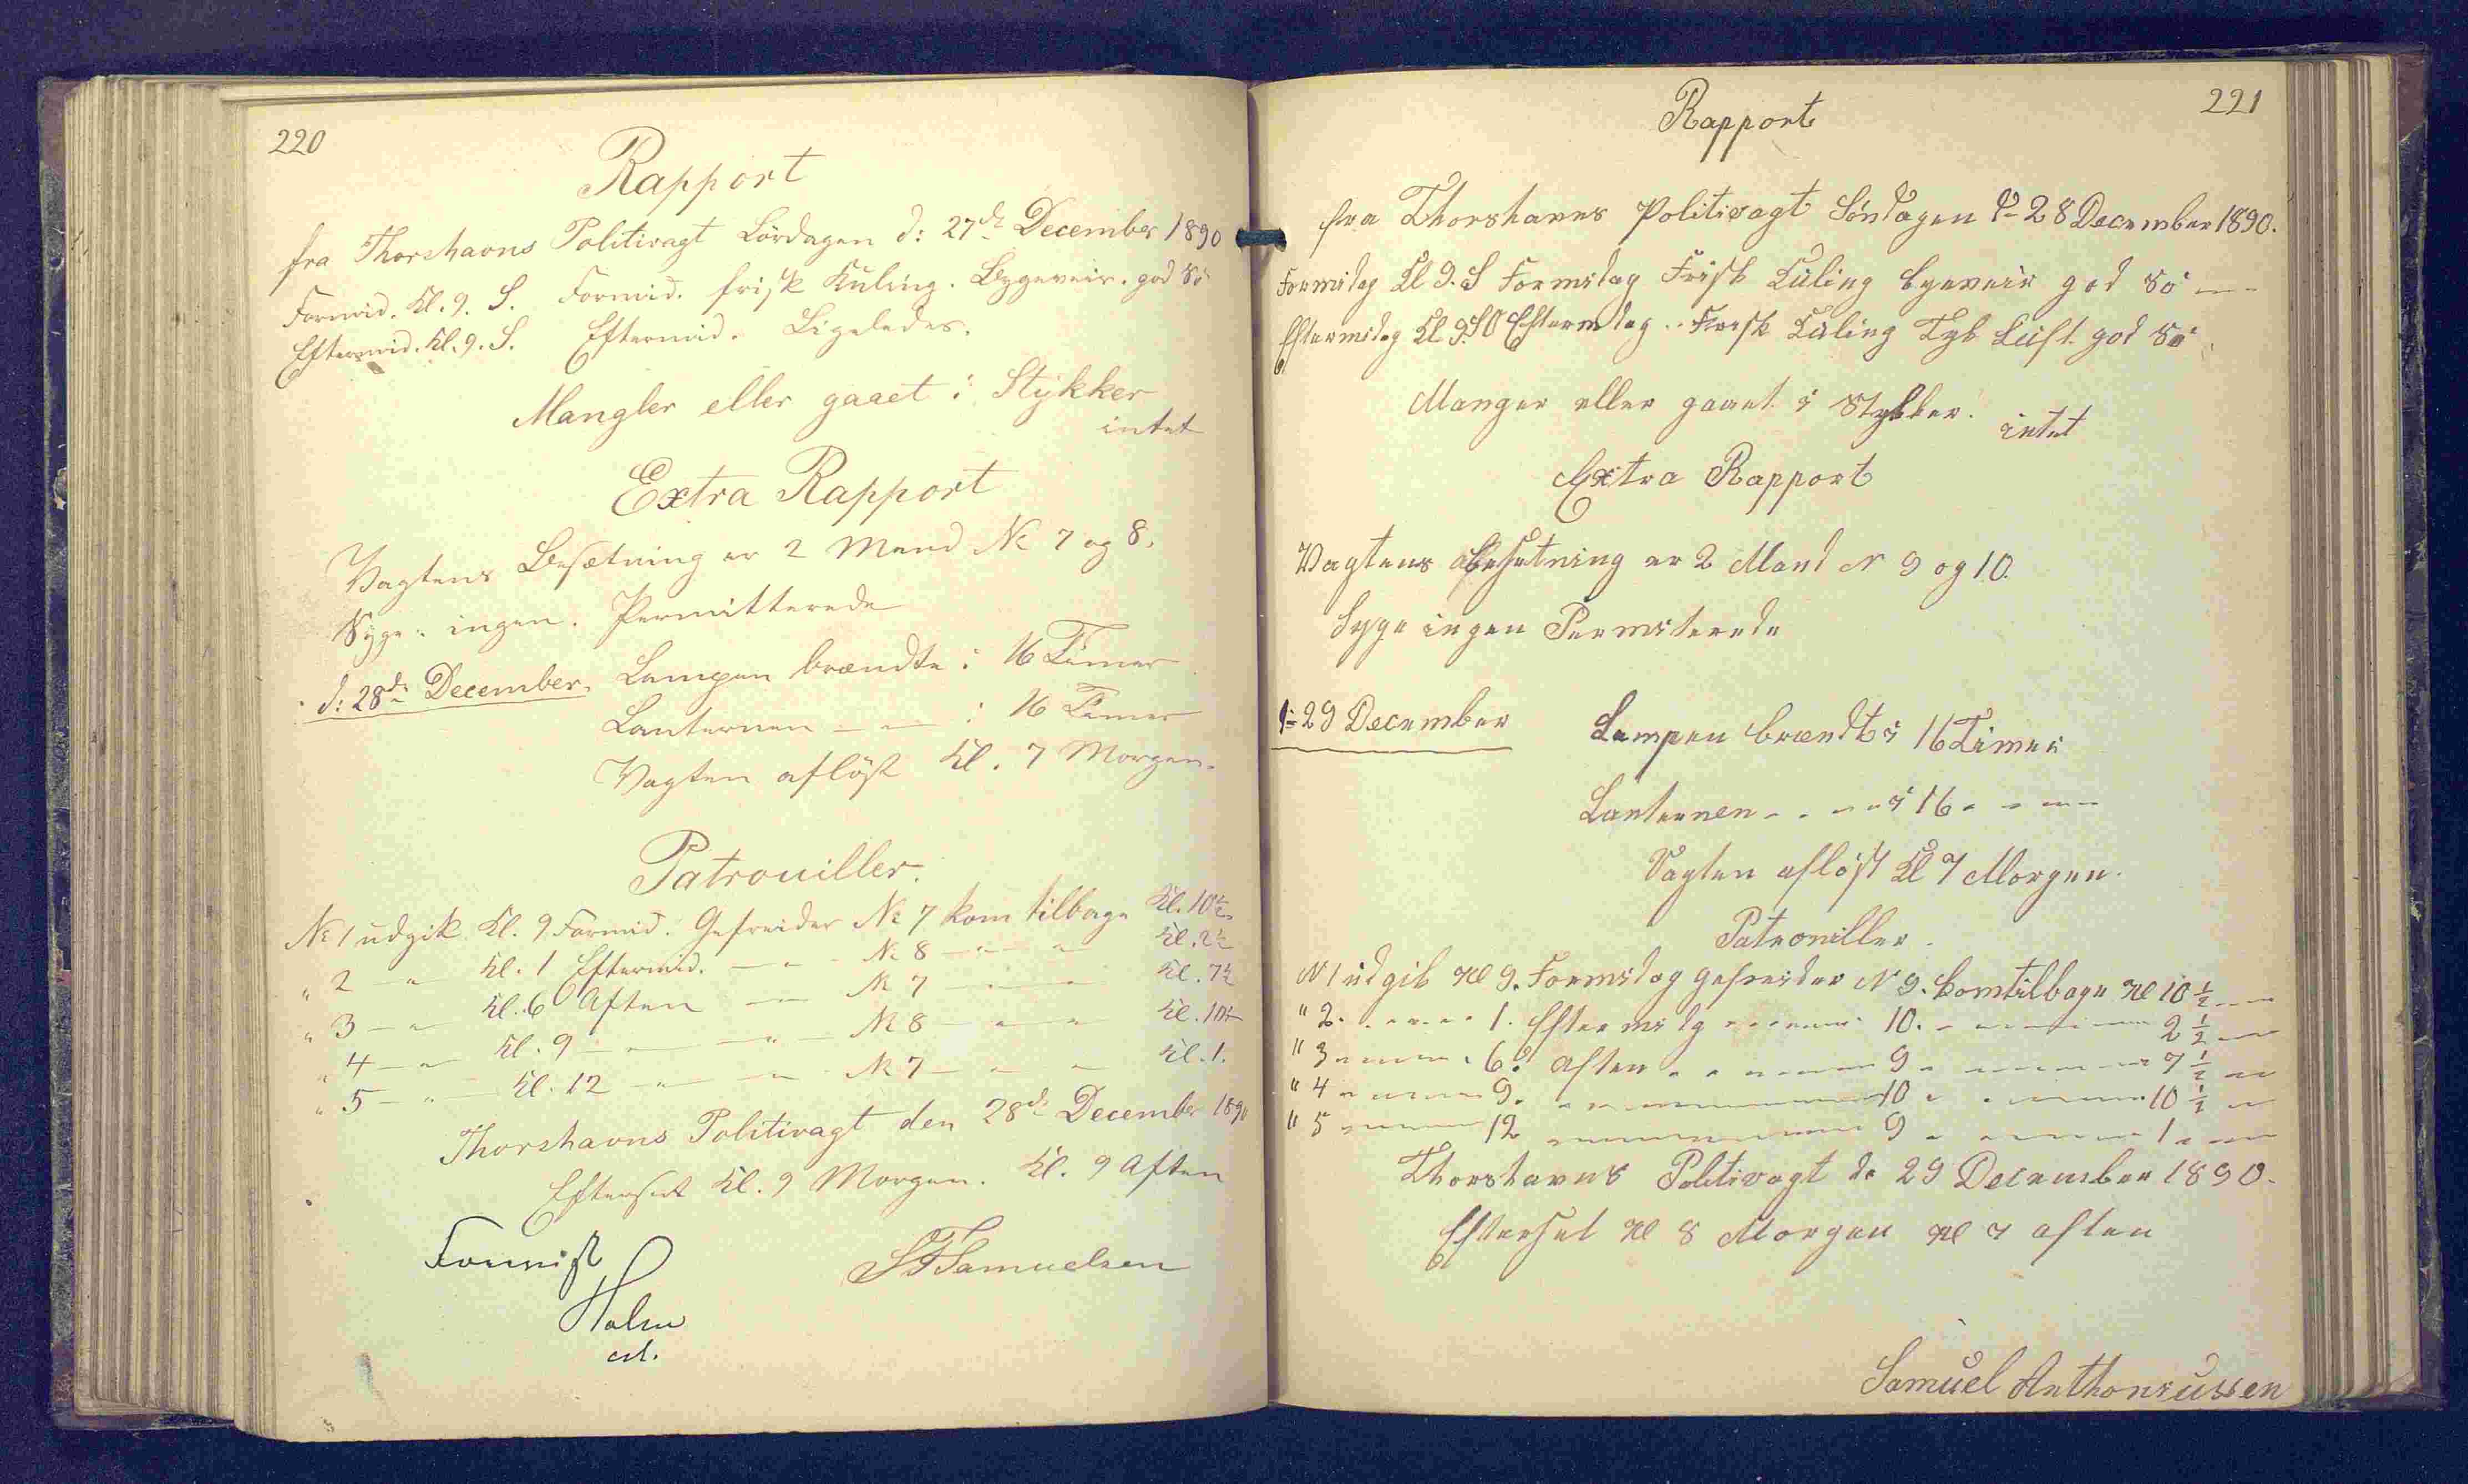 220
Rapport
fra Thorshavns Politivagt Lördagen d: 27de December 1890
Formid. Kl. 9. S. Formid. frisk Kuling. Bygeveir. god Sö
Eftermid. Kl. 9. S. Eftermid. Ligeledes.
Mangler eller gaaet i Stykker
intet
Extra Rapport
Vagtens Besætning er 2 Mand No 7 og 8.
Syge: ingen. Permitterede
d: 28de December. Lampen brændte i 16 Timer
Lanternen — " — i 16 Timer
Vagten aflöst Kl. 7 Morgen.
Patrouiller.
No 1 udgik Kl. 9 Formid. Gefreider No 7 kom tilbage Kl. 10½
" 2 — " — Kl. 1 Eftermid. — " — No 8 — " — " — Kl. 2½
" 3 — " — Kl. 6 Aften — " — No 7 — " — " — Kl. 7½
" 4 — " — Kl. 9 — " — " — No 8 — " — " — Kl. 10½
" 5 — " — Kl. 12 — " — " — No 7 — " — " — Kl. 1.
Thorshavns Politivagt den 28de December 1890
Efterset Kl. 9 Morgen. Kl. 9 Aften
SFSamuelsen
Holm
cst.
221
Rapport
fra Thorshavns Politivagt Söndagen d= 28 December 1890.
Formidag Kl 9. S Formidag Frisk Kuling byeveir god Sö
Eftermidag Kl 9. SO Eftermidag Frisk Kuling Tyk Luft god Sö
Manger eller gaaet i Stykker. intet
Extra Rapport
Vagtens Besetning er 2 Mand N 9 og 10.
Syge ingen Permiterede
d= 29 December Lampen brændte i 16 Timer
Lanternen - - - - i 16 - - - -
Vagten aflöst Kl 7 Morgen.
Patrouiller.
N 1 udgik Kl 9. Formidag gefreider N 9. komtilbage Kl 10 ½
" 2 - - - - 1. Eftermidag - - - - 10. - - - - 2 ½
" 3 - - - - 6. Aften - - - - 9 - - - - 7 ½
" 4 - - - - 9. - - - - 10 - - - - 10 ½
" 5 - - - - 12 - - - - 9 - - - - 1
Thorshavns Politivagt d. 29 December 1890.
Efterset Kl 8 Morgen Kl 7 aften
Samuel Anthoniussen